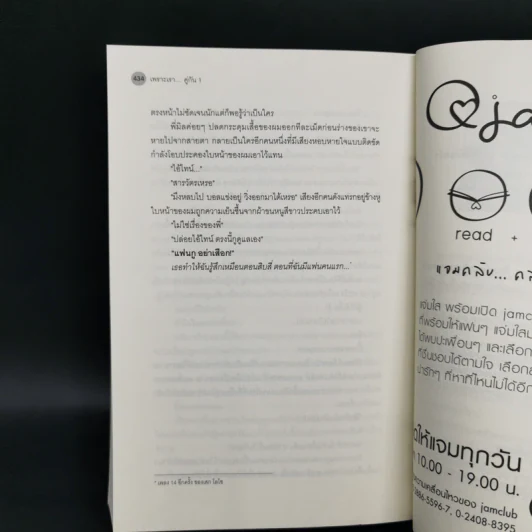 434 เพราะเรา... คู่กัน 1
ตรงหน้าไม่ชัดเจนนักแต่ก็พอรู้ว่าเป็นใคร
พี่มิลค่อยๆ ปลดกระดุมเสื้อของผมออกทีละเม็ดก่อนร่างของเขาจะ
หายไปจากสายตา กลายเป็นใครอีกคนหนึ่งที่มีเสียงหอบหายใจแบบติดขัด
กำลังโอบประคองใบหน้าของผมเอาไว้แทน
"ไอ้ไทน์..."
"สารวัตรเหรอ"
"มึงหลบไป บอลแข่งอยู่ วิ่งออกมาได้เหรอ" เสียงอีกคนดังแทรกอยู่ข้างหู
ใบหน้าของผมถูกความเย็นชื้นจากผ้าขนหนูสีขาวประคบเอาไว้
"ไม่ใช่เรื่องของพี่"
"ปล่อยไอ้ไทน์ ตรงนี้กูดูแลเอง"
"แฟนกู อย่าเสือก!"
เธอทำให้ฉันรู้สึกเหมือนตอนสิบสี่ ตอนที่ฉันมีแฟนคนแรก...*
* เพลง 14 อีกครั้ง ของเสก โลโซ
read +
แจมคลับ...
แจ่มใส พร้อมเปิด
ที่พร้อมให้แฟนๆ แจ่มใส
ได้พบปะเพื่อนๆ และเลือก
ที่ชื่นชอบได้ตามใจ
น่ารักๆ ที่หาที่ไหนไม่ได้อีก
ให้แจมทุกวัน
10.00 - 19.00 น.
ความเคลื่อนไหวของ jamclub
0-2408-8395